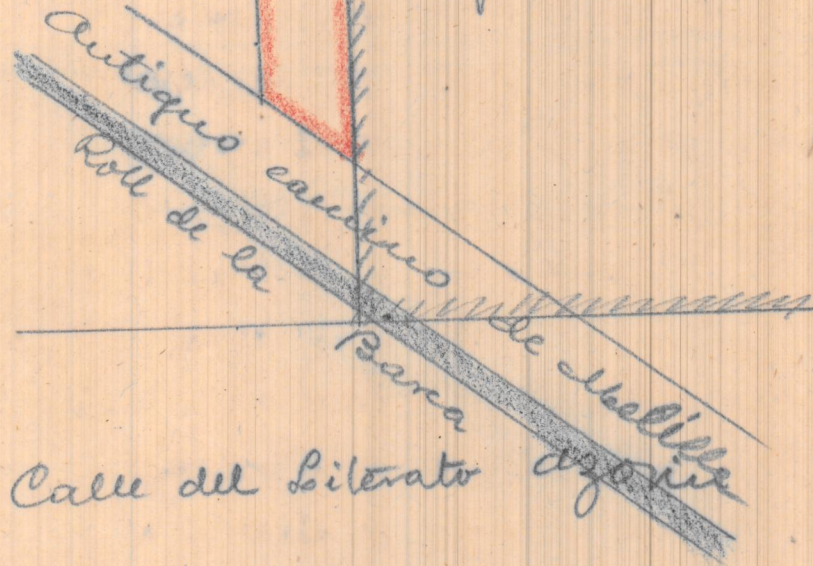 Antiguo camino de Melilla
Roll de la Barca
Calle del Literato Azorín